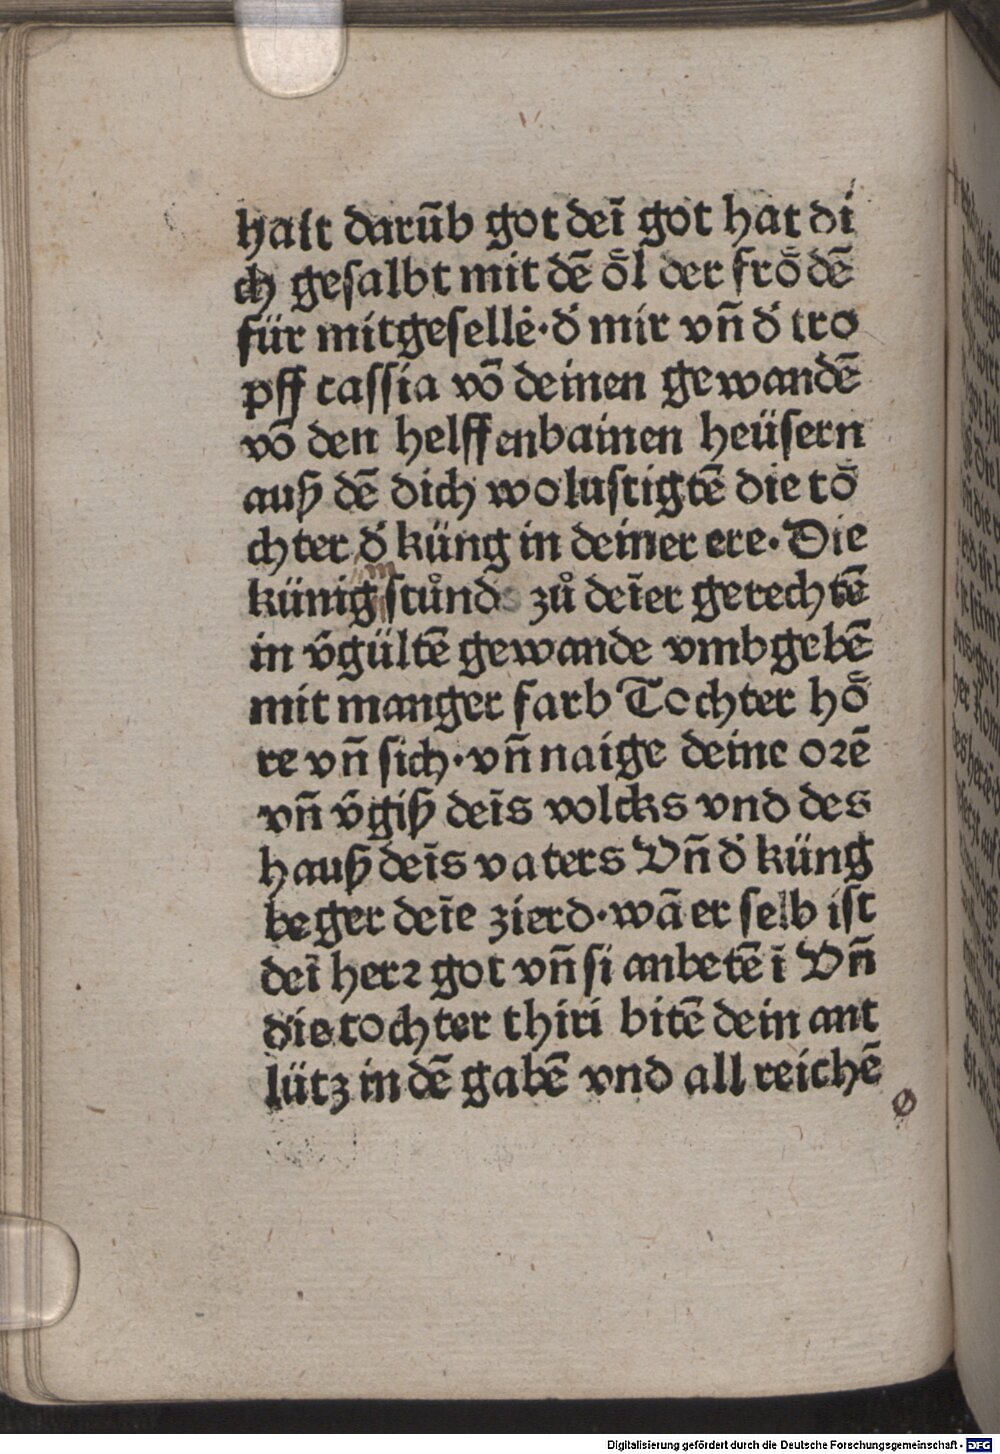 hait darūb got deī got hat di
ch gesalbt mit dē ȫl der frȫdē
für mitgesellē·d̓ mir vn̄ d̓ tro
pff cassia vō deinen gewandē
vō den helffenbainen heüsern
auß dē dich wolustigtē die tö
chter d̓ küng in deiner ere·Die
künig stůnd zů deīer gerechtē
in v̓gültē gewande vmbgebē
mit manger farb Tochter hö
re vn̄ sich·vn̄ naige deine orē
vn̄ v̓giß deīs volcks vnd des
hauß deīs vaters Vn̄ d̓ küng
beger deīe zierd·wā er selb ist
deī herr got vn̄ si anbetē ī Vn̄
die tochter thiri bitē dein ant
lütz in dē gabē vnd all reichē
Digitalisierung gefördert durch die Deutsche Forschungsgemeinschaft - DFG